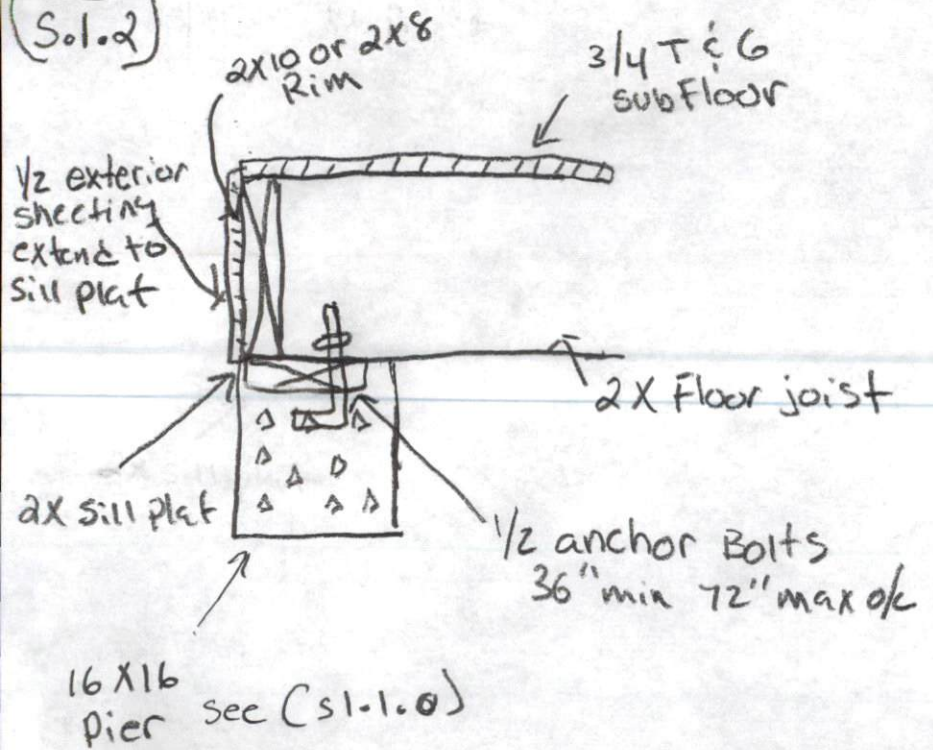 (S.1.2)
2x10 or 2x8
Rim
3/4 T & G
subFloor
1/2 exterior
sheeting
extend to
sill plat
2X Floor joist
2X sill plat
1/2 anchor Bolts
36" min 72" max o/c
16 X16
Pier
see (s1.1.0)